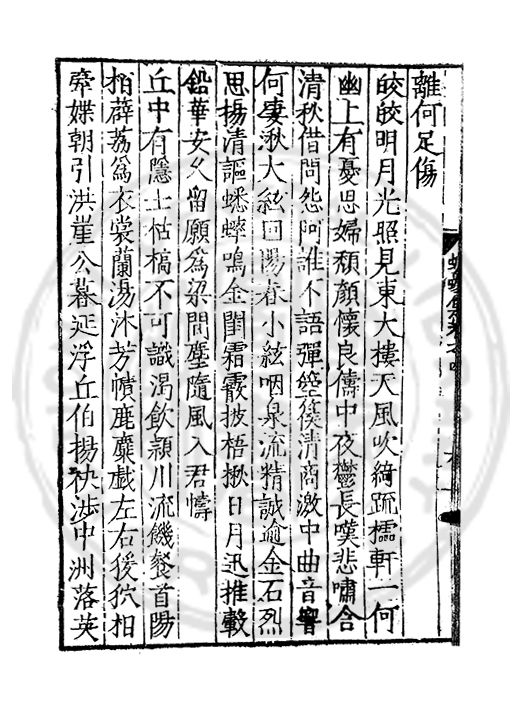 離何足傷
皎皎明月光照見東大樓天風吹綺疏櫺軒一何
幽上有憂思婦頹顏懷良儔中夜鬱長嘆悲嘯含
清秋借問怨阿誰不語彈箜篌清商激中曲音響
何凄湫大絃回陽春小絃咽泉流精誠逾金石烈
思揚清謳蟋蟀鳴金閨霜霰披梧楸日月迅推轂
鉛華安久留願爲梁間塵隨風入君幬
丘中有隱士枯槁不可識渴飲潁川流饑餐首陽
柏薜荔爲衣裳蘭湯沐芳幘鹿麋戲左右猨狖相
牽媒朝引洪崖公暮延浮丘伯揚袂涉中洲落英
蠛蠓集卷之四